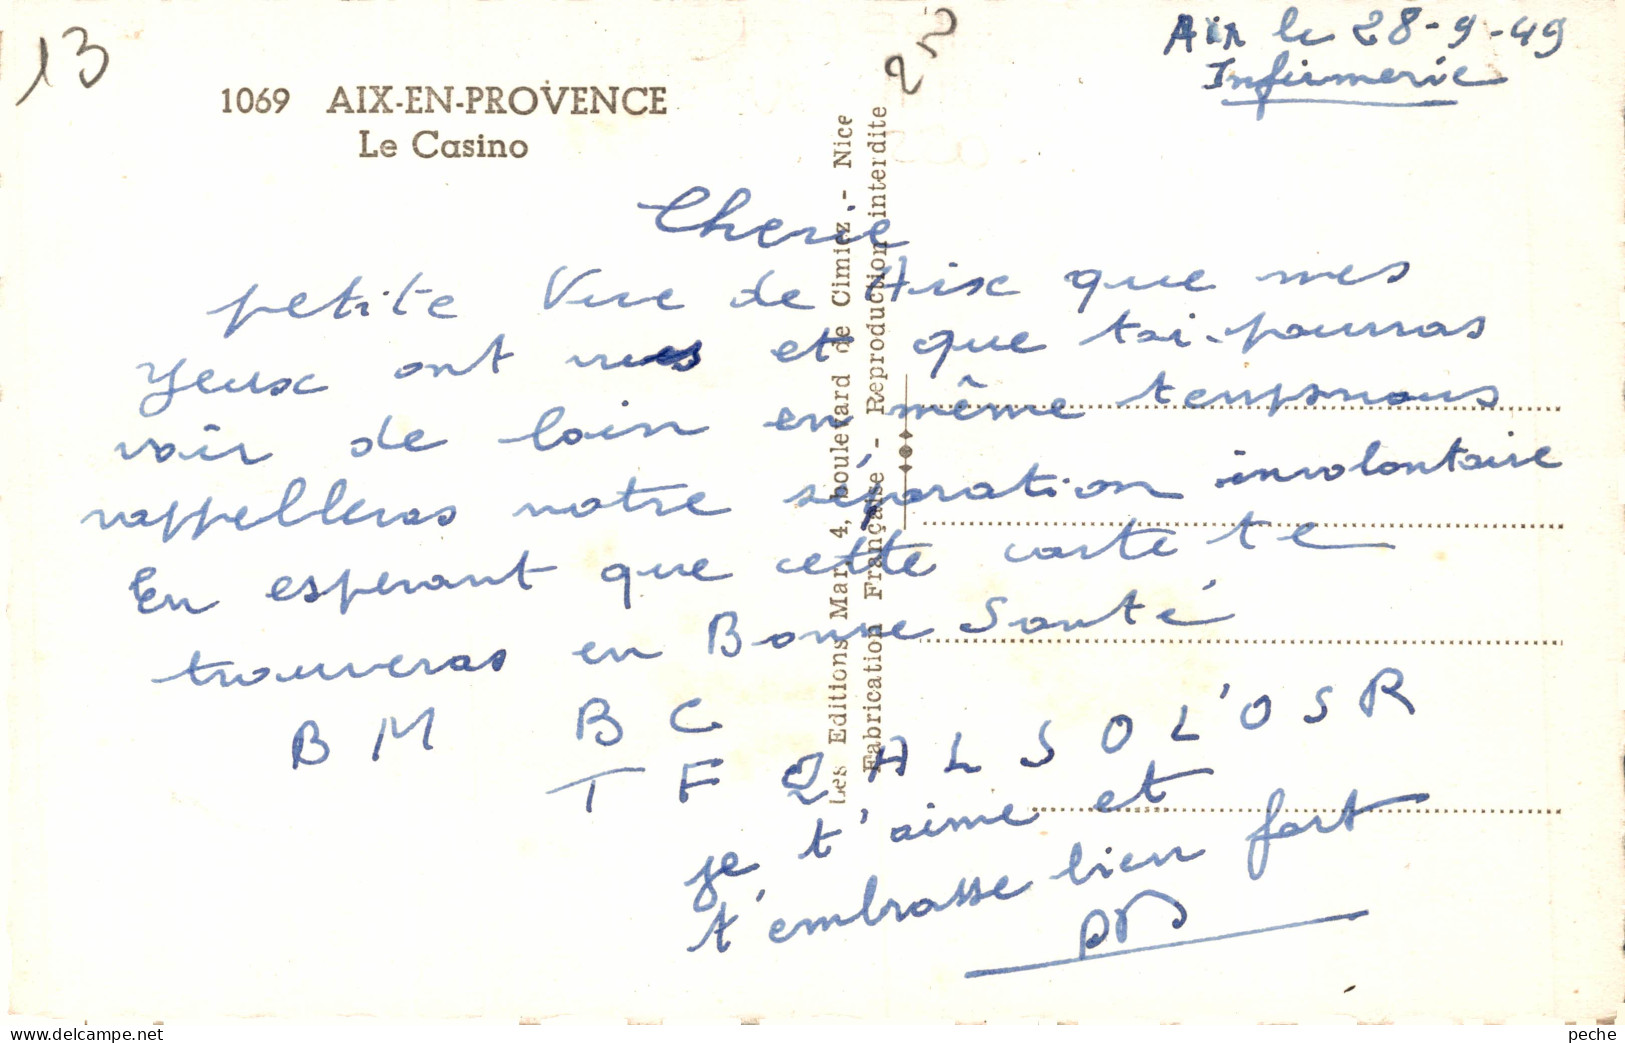 13
22
Aix le 28-9-49
Infirmerie
1069 AIX-EN-PROVENCE
Le Casino
Les Editions Mar, 4, boulevard de Cimiez - Nice
Fabrication Française - Reproduction interdite
Cherie
petite Vue de Aix que mes
yeux ont vues et que toi pourras
voir de loin en même temps nous
rappelleras notre séparation involontaire
En esperant que cette carte te
trouveras en Bonne Santé
B M B C
T F Q A L S O L'O S R
je t'aime et
t'embrasse bien fort
peche